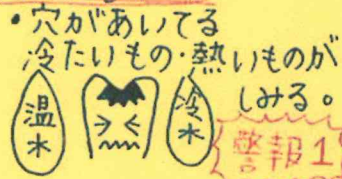 ・穴があいてる
冷たいもの・熱いものが
しみる。
温水
冷水
警報1